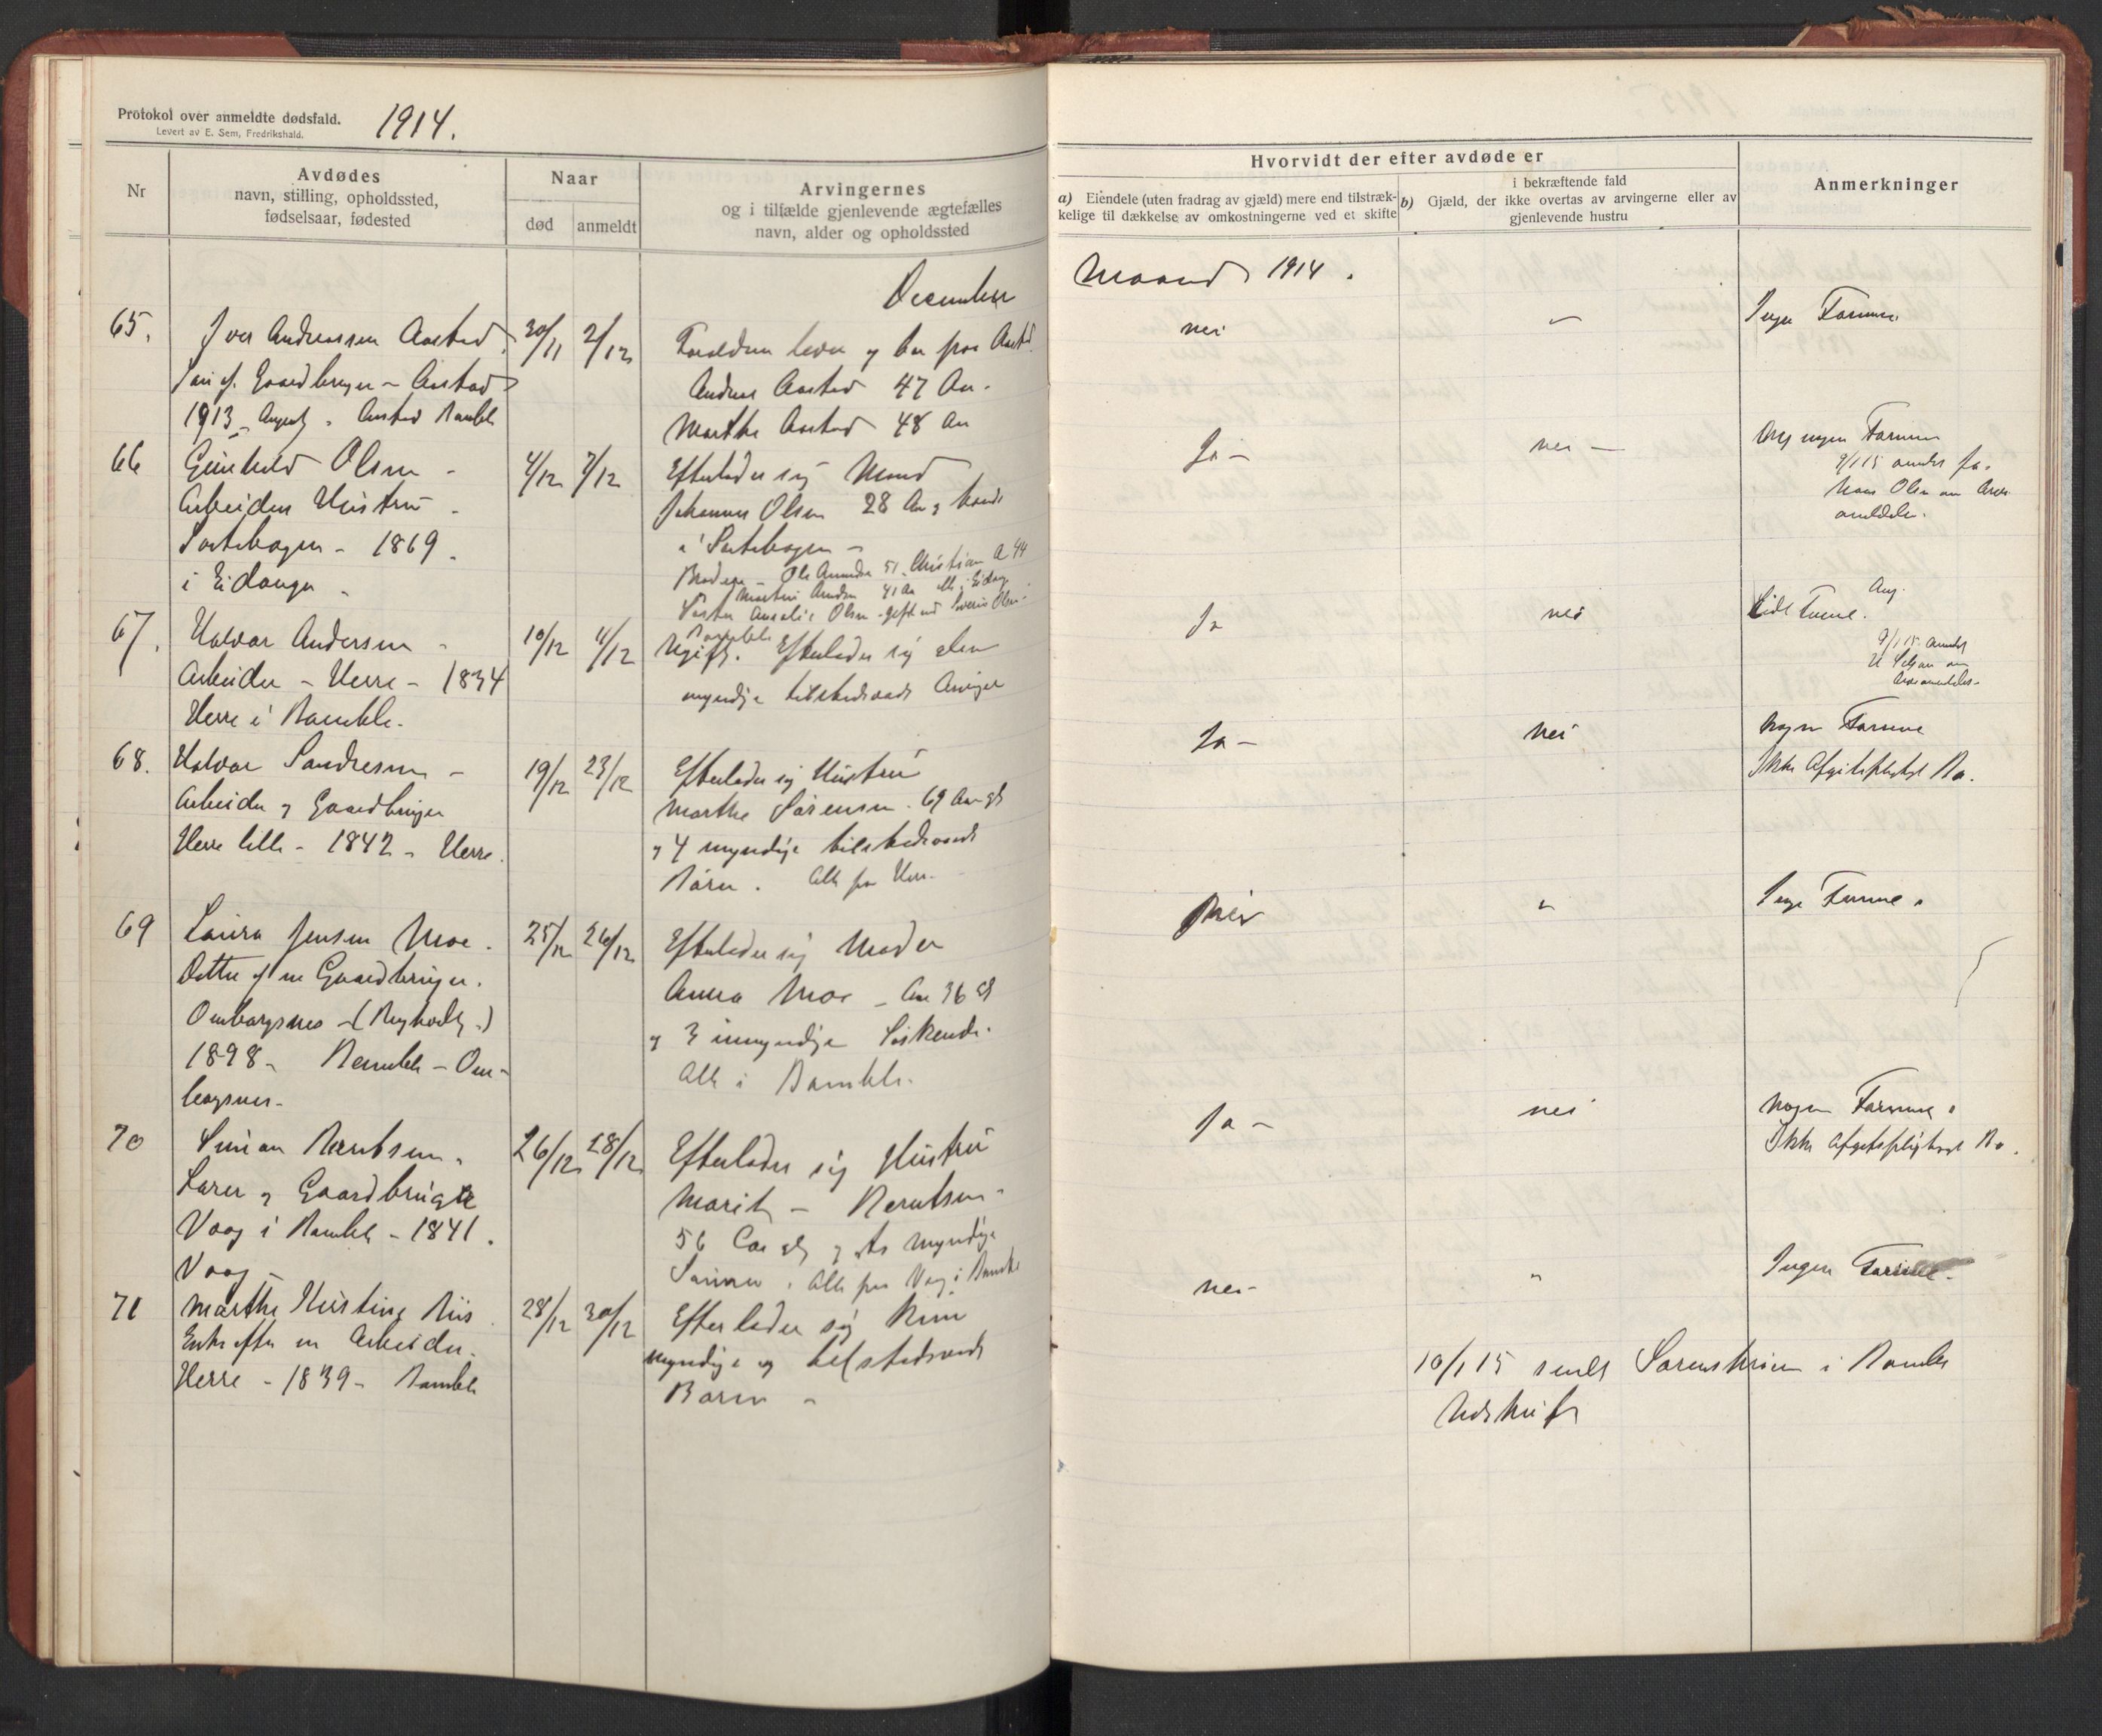 Protokol over anmeldte dødsfald.
Levert av E. Sem, Fredrikshald.
1914.
Nr
Avdødes
navn, stilling, opholdssted,
fødselsaar, fødested
Naar
død
anmeldt
Arvingernes
og i tilfælde gjenlevende ægtefælles
navn, alder og opholdssted
Hvorvidt der efter avdøde er
a) Eiendele (uten fradrag av gjæld) mere end tilstræk-
kelige til dækkelse av omkostningerne ved et skifte
i bekræftende fald
b) Gjæld, der ikke overtas av arvingerne eller av
gjenlevende hustru
Anmerkninger
December
Maaned 1914.
65.
Iver Andreassen Aastad
Søn af Gaardbruger - Aastad
1913 - August - Aastad Bamble
30/11 2/12
Forældre lever og bor paa Aastad
Andreas Aastad 47 Aar -
Marthe Aastad 48 Aar
nei
"
Ingen Formue
66
Gunhild Olsen -
Arbeiders Hustru -
Sortebogen - 1869.
i Eidanger -
4/12 7/12
Efterlader sig Mand
Johannes Olsen 28 Aar
i Sortebogen -
Brødre - Ole Amundsen 51. Christian A 44
Martin Amundsen 41 Aar alle i Eidanger
Søster Amalie Olsen - gift med Olsen -
Bamble
Ja -
nei -
Formue
9/1 15 anmeldt
Hans Olsen om Arve
anmeldelse.
67.
Halvor Andersen -
Arbeider - Herre - 1834
Herre i Bamble.
10/12 11/12
Ugift. Efterlader sig
myndige tilstedeværende Arvinger
Ja
nei
Lidt Formue.
9/1 15 anmeldt
Arveanmeldelse -
68.
Halvor Sandersen -
Arbeider og Gaardbruger
Herre lille - 1842 - Herre.
19/12 23/12
Efterlader sig Hustru
Marthe Sørensen. 69 Aar gl
og 4 myndige tilstedeværende
Børn. Alle paa Herre.
Ja -
nei
Nogen Formue
Ikke Afgiftspligtigt Bo.
69
Laura Jensen Moe.
Datter af en Gaardbruger.
Ombargsnes -
1898 - Bamble - Om-
bargsnes -
25/12 26/12
Efterlader sig Moder
Anna Moe - Aar 36 gl
og 3 umyndige Søskende.
Alle i Bamble.
Nei
"
Ingen Formue.
70
Simon Berntsen.
Lærer og Gaardbruger
Vaag i Bamble - 1841.
Vaag -
26/12 28/12
Efterlader sig Hustru
Marit - Berntsen -
56 Aar gl og to myndige
Sønner. Alle paa Vaag i Bamble
Ja -
nei
Nogen Formue.
Ikke Afgiftspligtigt Bo.
71
Marthe Kirstine Riis
Enke efter en Arbeider.
Herre - 1839 - Bamble
28/12 30/12
Efterlader sig kun
myndige og tilstedeværende
Børn -
nei -
"
Ingen Formue.
10/1 15 sendt Sorenskriveren i Bamble
Udskrift